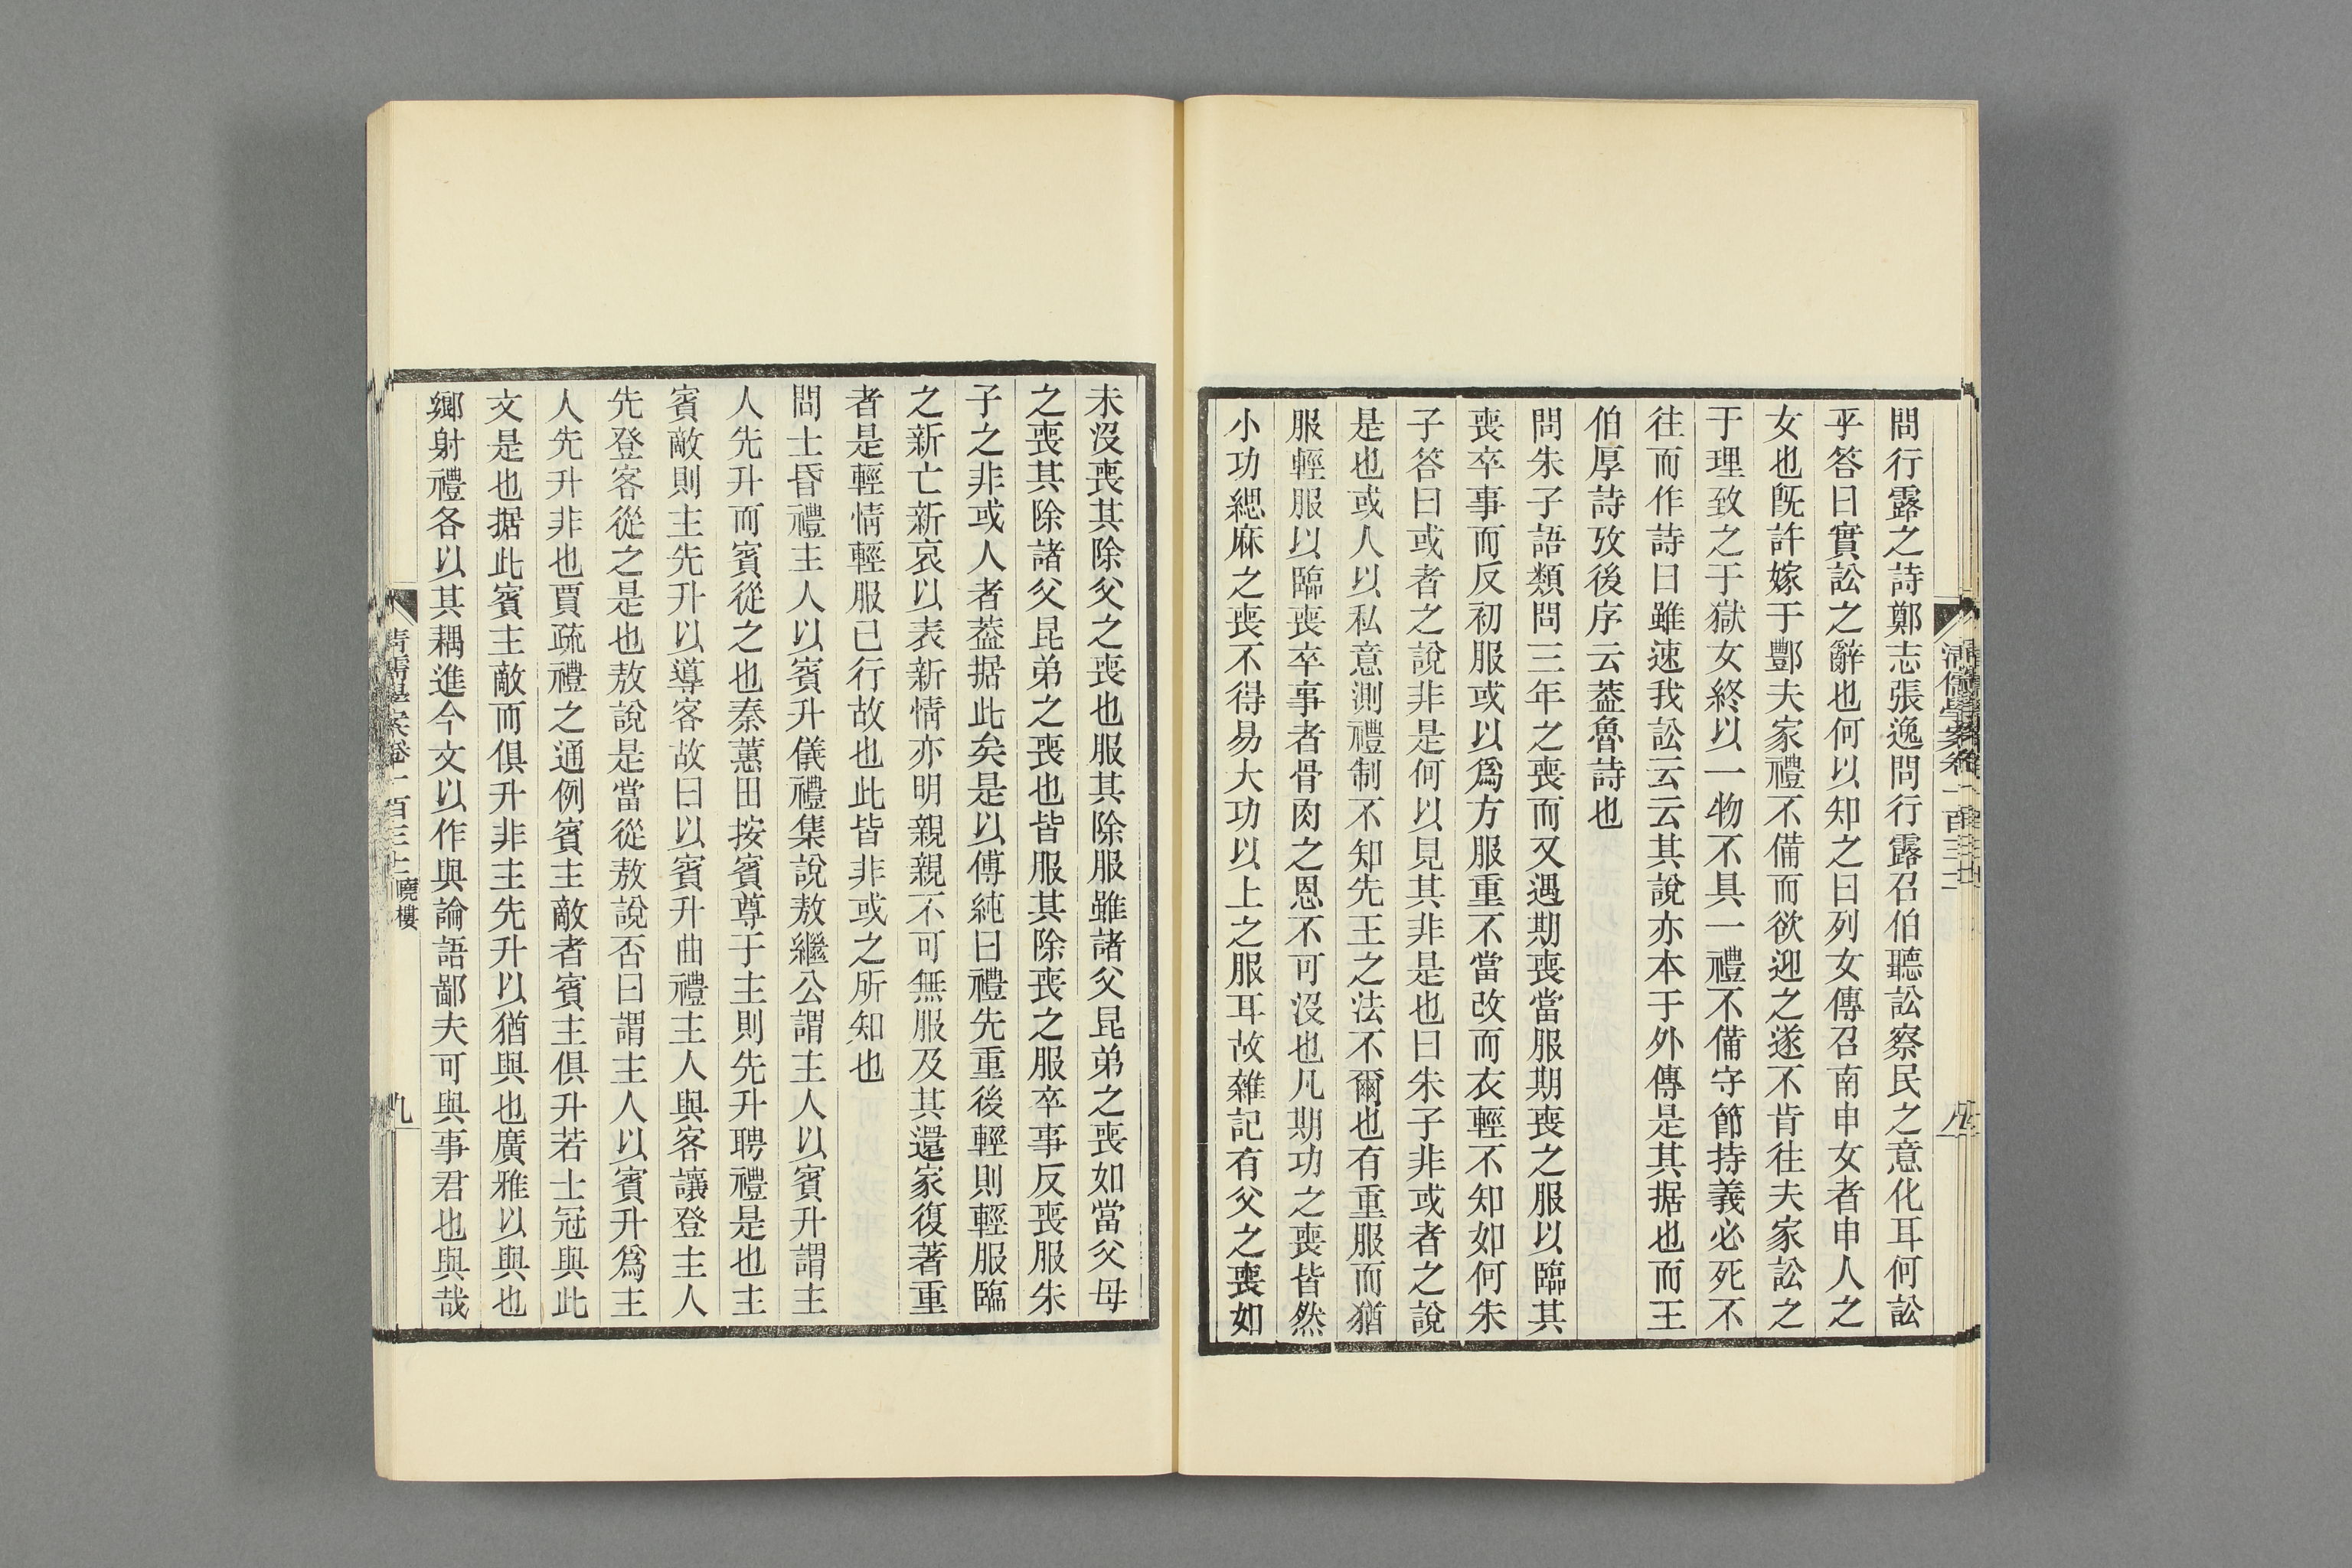 問行露之詩鄭志張逸問行露召伯聽訟察民之意化耳何訟
乎答曰實訟之辭也何以知之曰列女傳召南申女者申人之
女也旣許嫁于酆夫家禮不備而欲迎之遂不肯往夫家訟之
于理致之于獄女終以一物不具一禮不備守節持義必死不
往而作詩曰雖速我訟云云其說亦本于外傳是其据也而王
伯厚詩攷後序云葢魯詩也
問朱子語類問三年之喪而又遇期喪當服期喪之服以臨其
喪卒事而反初服或以爲方服重不當改而衣輕不知如何朱
子答曰或者之說非是何以見其非是也曰朱子非或者之說
是也或人以私意測禮制不知先王之法不爾也有重服而猶
服輕服以臨喪卒事者骨肉之恩不可沒也凡期功之喪皆然
小功緦麻之喪不得易大功以上之服耳故雜記有父之喪如
未沒喪其除父之喪也服其除服雖諸父昆弟之喪如當父母
之喪其除諸父昆弟之喪也皆服其除喪之服卒事反喪服朱
子之非或人者葢据此矣是以傅純曰禮先重後輕則輕服臨
之新亡新哀以表新情亦明親親不可無服及其還家復著重
者是輕情輕服已行故也此皆非或之所知也
問士昏禮主人以賓升儀禮集說敖繼公謂主人以賓升謂主
人先升而賓從之也秦蕙田按賓尊于主則先升聘禮是也主
賓敵則主先升以導客故曰以賓升曲禮主人與客讓登主人
先登客從之是也敖說是當從敖說否曰謂主人以賓升爲主
人先升非也賈疏禮之通例賓主敵者賓主俱升若士冠與此
文是也据此賓主敵而俱升非主先升以猶與也廣雅以與也
鄉射禮各以其耦進今文以作與論語鄙夫可與事君也與哉
清儒學案卷一百三十 曉樓
九